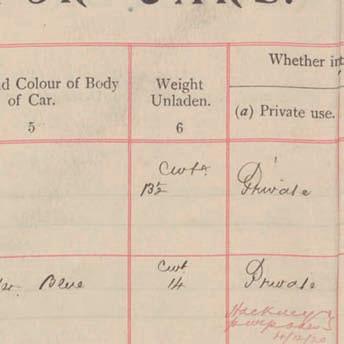 FOR CARS.
d Colour of Body
of Car.
Weight
Unladen.
Whether in
(a) Private use.
5
6
Cwts
13½
Private
Blue
Cwt
14
Private
Hackney
purposes